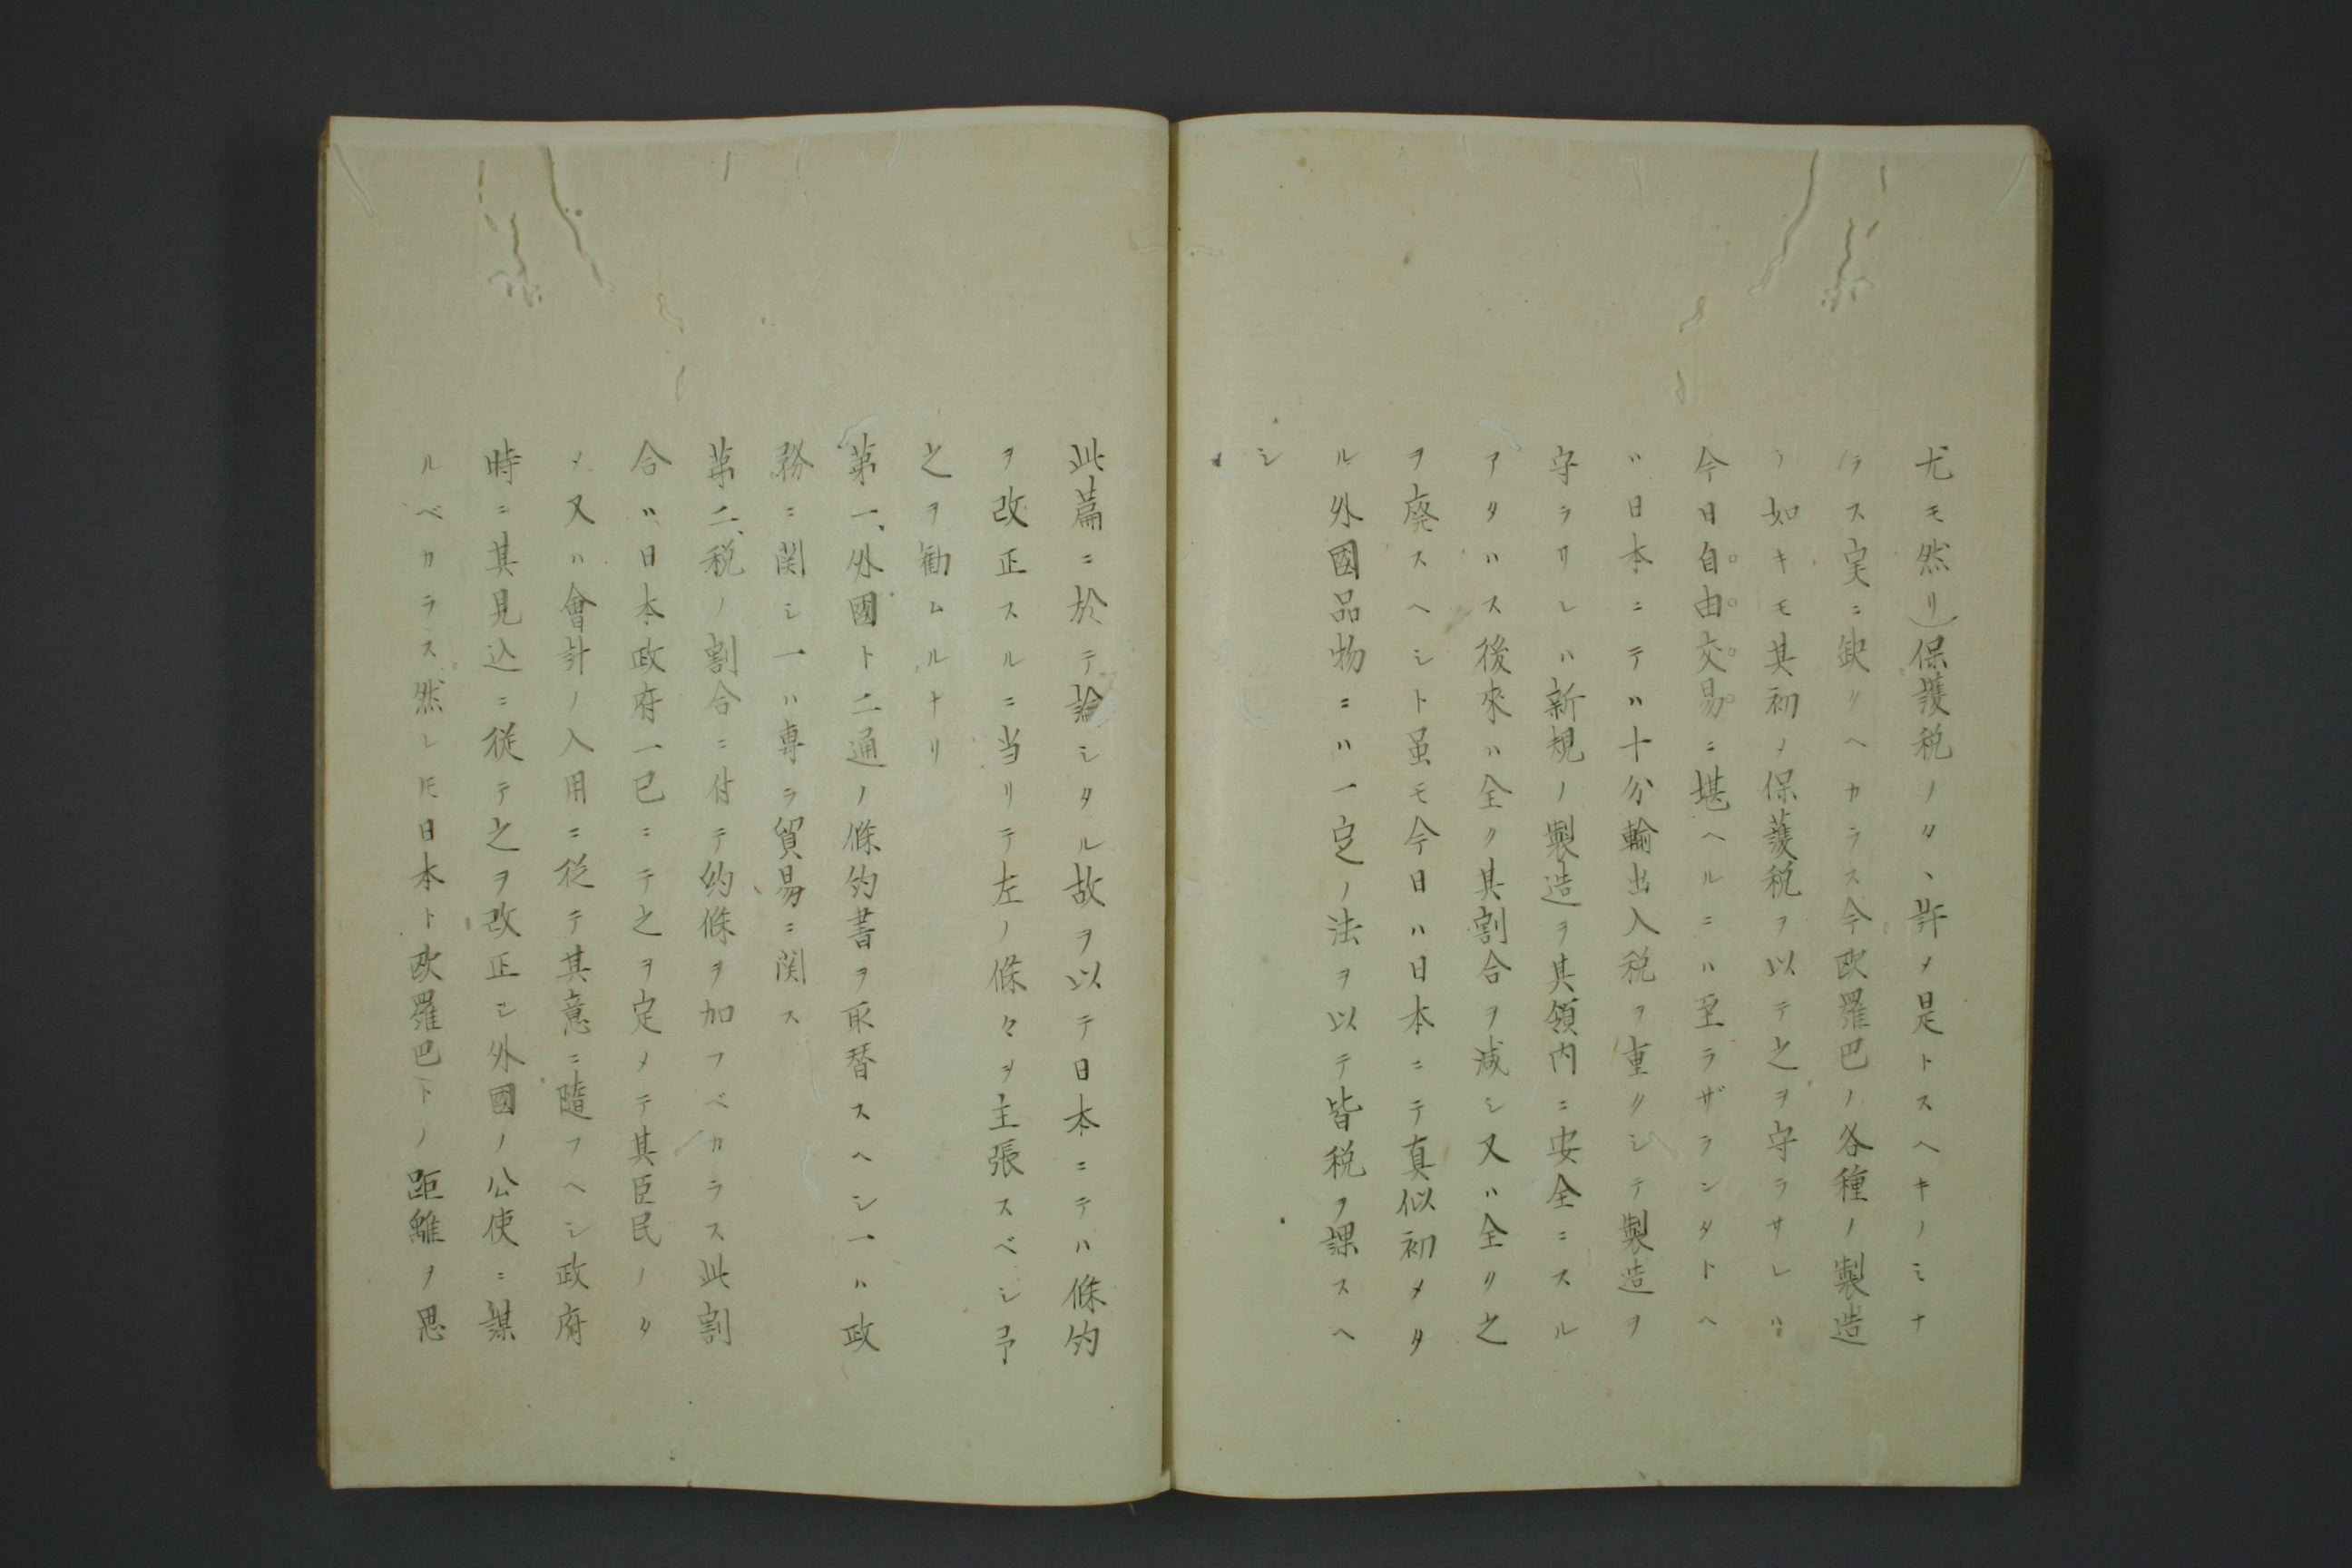 尤モ然リ）保護税ノタヽ許メ是トスヘキノミナ
ラス実ニ缺クヘカラス今欧羅巴ノ各種ノ製造
ノ如キモ其初メ保護税ヲ以テ之ヲ守ラサレハ
今日自由交易ニ堪ヘルニハ至ラザランタトヘ
ハ日本ニテハ十分輸出入税ヲ重クシテ製造ヲ
守ラサレハ新規ノ製造ヲ其領内ニ安全ニスル
アタハス後來ハ全ク其割合ヲ減シ又ハ全ク之
ヲ廃スヘシト虽モ今日ハ日本ニテ真似初メタ
ル外國品物ニハ一定ノ法ヲ以テ皆税ヲ課スヘ
シ
此篇ニ於テ論シタル故ヲ以テ日本ニテハ條約
ヲ改正スルニ当リテ左ノ條々ヲ主張スベシ予
之ヲ勧ムルナリ
第一、外國ト二通ノ條約書ヲ取替スヘシ一ハ政
務ニ関シ一ハ専ラ貿易ニ関ス
第二、税ノ割合ニ付テ約條ヲ加フベカラス此割
合ハ日本政府一已ニテ之ヲ定メテ其臣民ノタ
メ又ハ會計ノ入用ニ従テ其意ニ隨フヘシ政府
時ニ其見込ニ従テ之ヲ改正シ外國ノ公使ニ謀
ルベカラス然レ𪜈日本ト欧羅巴トノ距離ヲ思